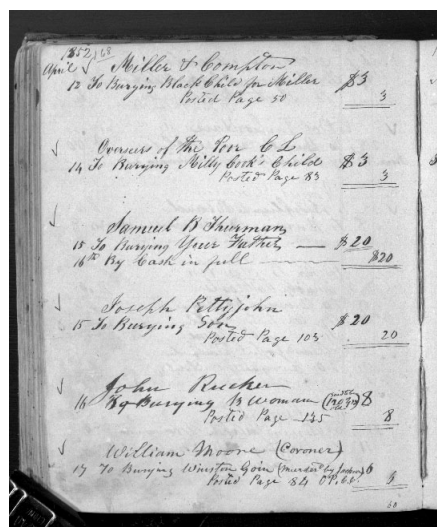 1852, 68
April Miller & Compton
12 To Burying Black Child for Miller $3
Posted Page 50 3
Overseers of the Poor C L
14 To Burying Milly Cook's Child $3
Posted Page 83 3
Samuel B Thurman
15 To Burying Your Father $20
16th By Cash in full $20
Joseph Pettyjohn
15 To Burying Son $20
Posted Page 103 20
John Rucker
16 Burying B Woman 8
Posted Page 135 8
William Moore (Coroner)
17 To Burying Winston Goin (Murdered by 6
Posted Page 84
50